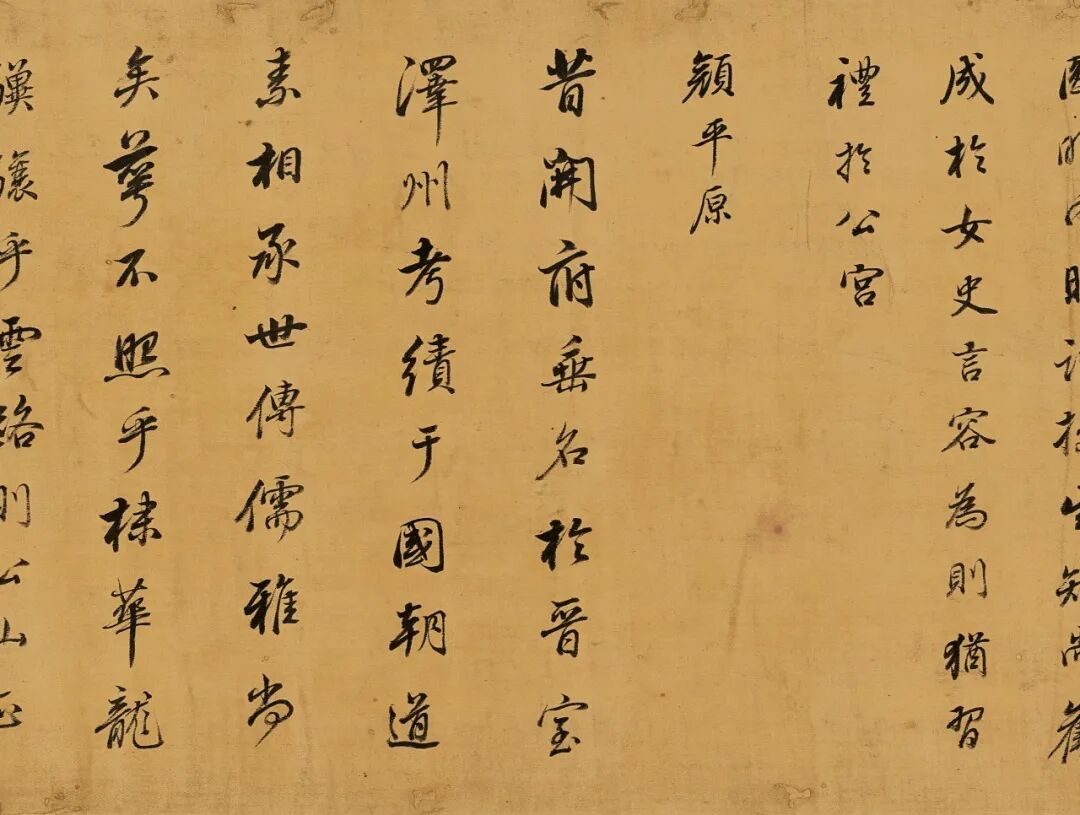 成於女史言容為則猶習
禮於公宮
顏平原
昔開府垂名於晉室
澤州考績于國朝道
素相承世傳儒雅尚
矣萼不照乎棣華龍
驥驤乎雲路則公山正